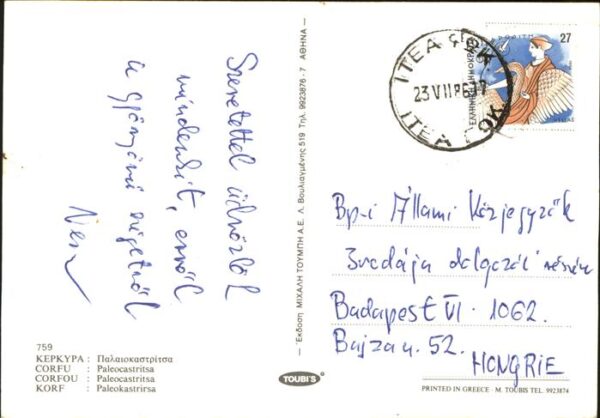 Szeretettel üdvözlök
mindenkit, erről
a gyönyörű szigetről
759
ΚΕΡΚΥΡΑ : Παλαιοκαστρίτσα
CORFU : Paleocastritsa
CORFOU : Paleocastritsa
KORF : Paleokastrirsa
— Έκδοση ΜΙΧΑΛΗ ΤΟΥΜΠΗ Α.Ε. Λ. Βουλιαγμένης 519 Τηλ. 9923876 - 7 ΑΘΗΝΑ —
TOUBI'S
27
ΑΦΡΟΔΙΤΗ
ΕΛΛΗΝΙΚΗ ΔΗΜΟΚΡΑΤΙΑ
ΙΤΕΑ ΦΩΚ
23 VII 86
ΙΤΕΑ ΦΩΚ
Bp-i Állami Közjegyzők
Irodája dolgozói részére
Budapest VI. 1062.
Bajza u. 52.
HONGRIE
PRINTED IN GREECE - M. TOUBIS TEL. 9923874